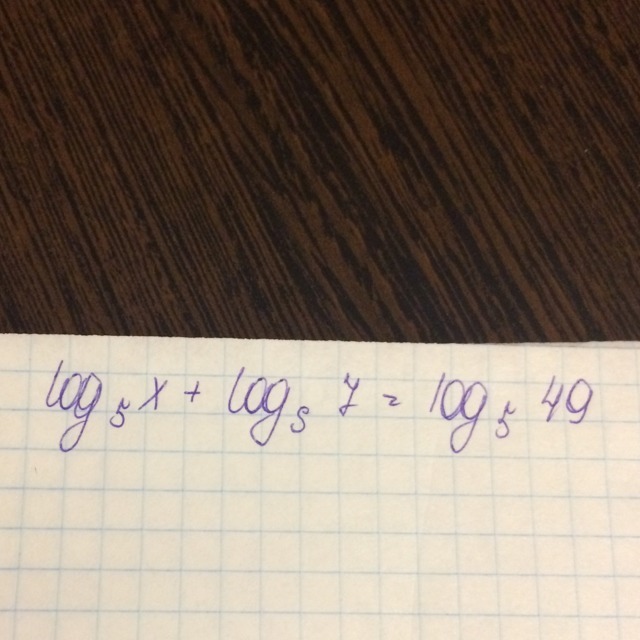 log₅ x + log₅ 7 = log₅ 49